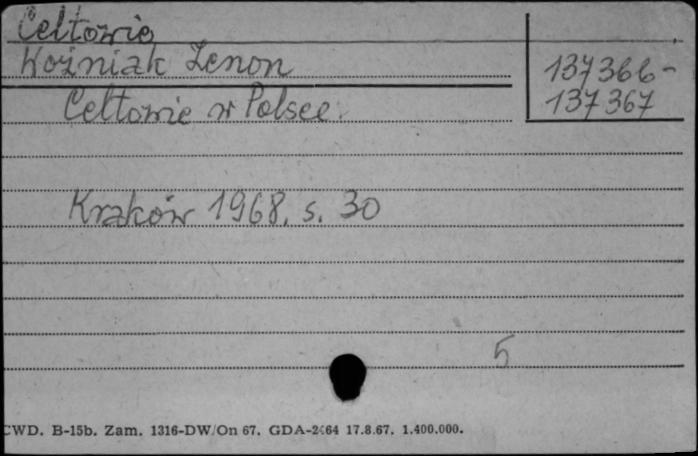 Celtowie
Woźniak Zenon
137366-
137367
Celtowie w Polsce.
Kraków 1968. s. 30
5
CWD. B-15b. Zam. 1316-DW/On 67. GDA-2464 17.8.67. 1.400.000.